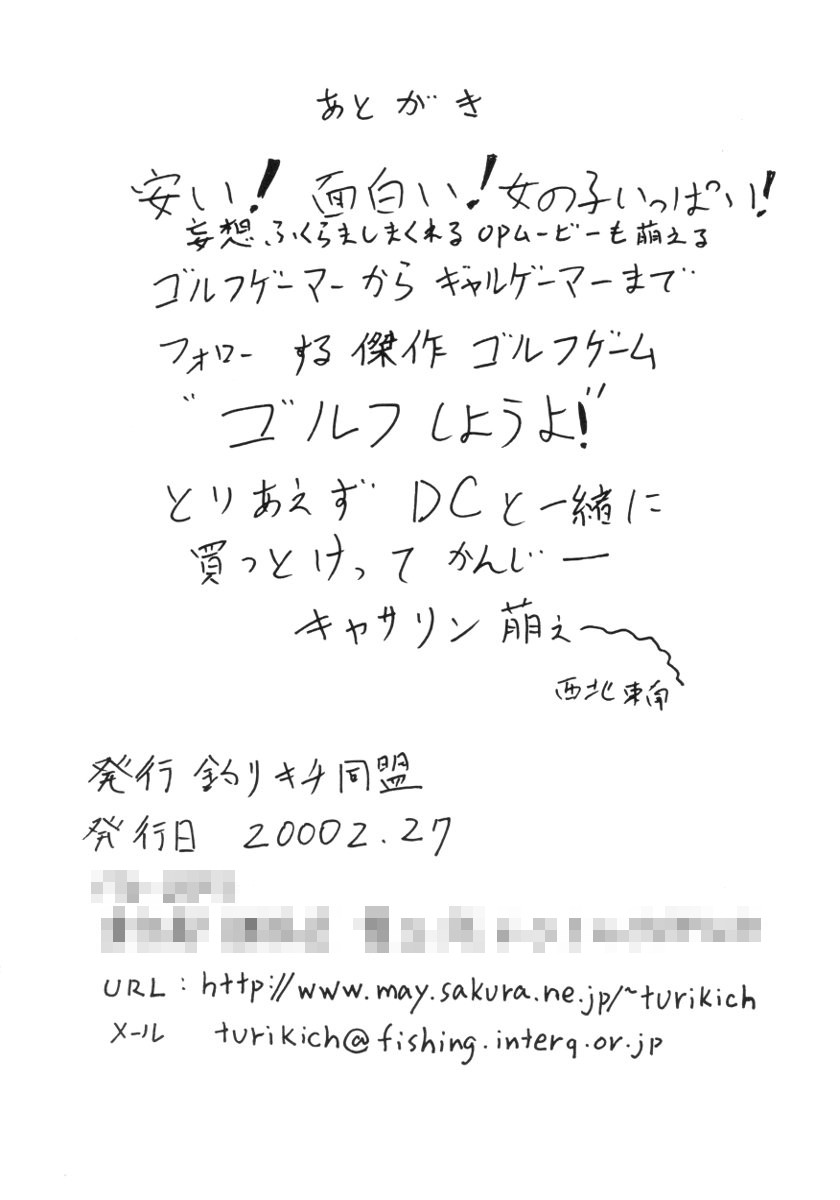 あとがき
安い!面白い!女の子いっぱい!
妄想ふくらましまくれるOPムービーも萌える
ゴルフゲーマーからギャルゲーマーまで
フォローする傑作ゴルフゲーム
"ゴルフしようよ!"
とりあえずDCと一緒に
買っとけってかんじー
キャサリン萌え〜
西北東南
発行 釣りキチ同盟
発行日 20002.27
URL:http://www.may.sakura.ne.jp/~turikich
メール turikich@fishing.interq.or.jp